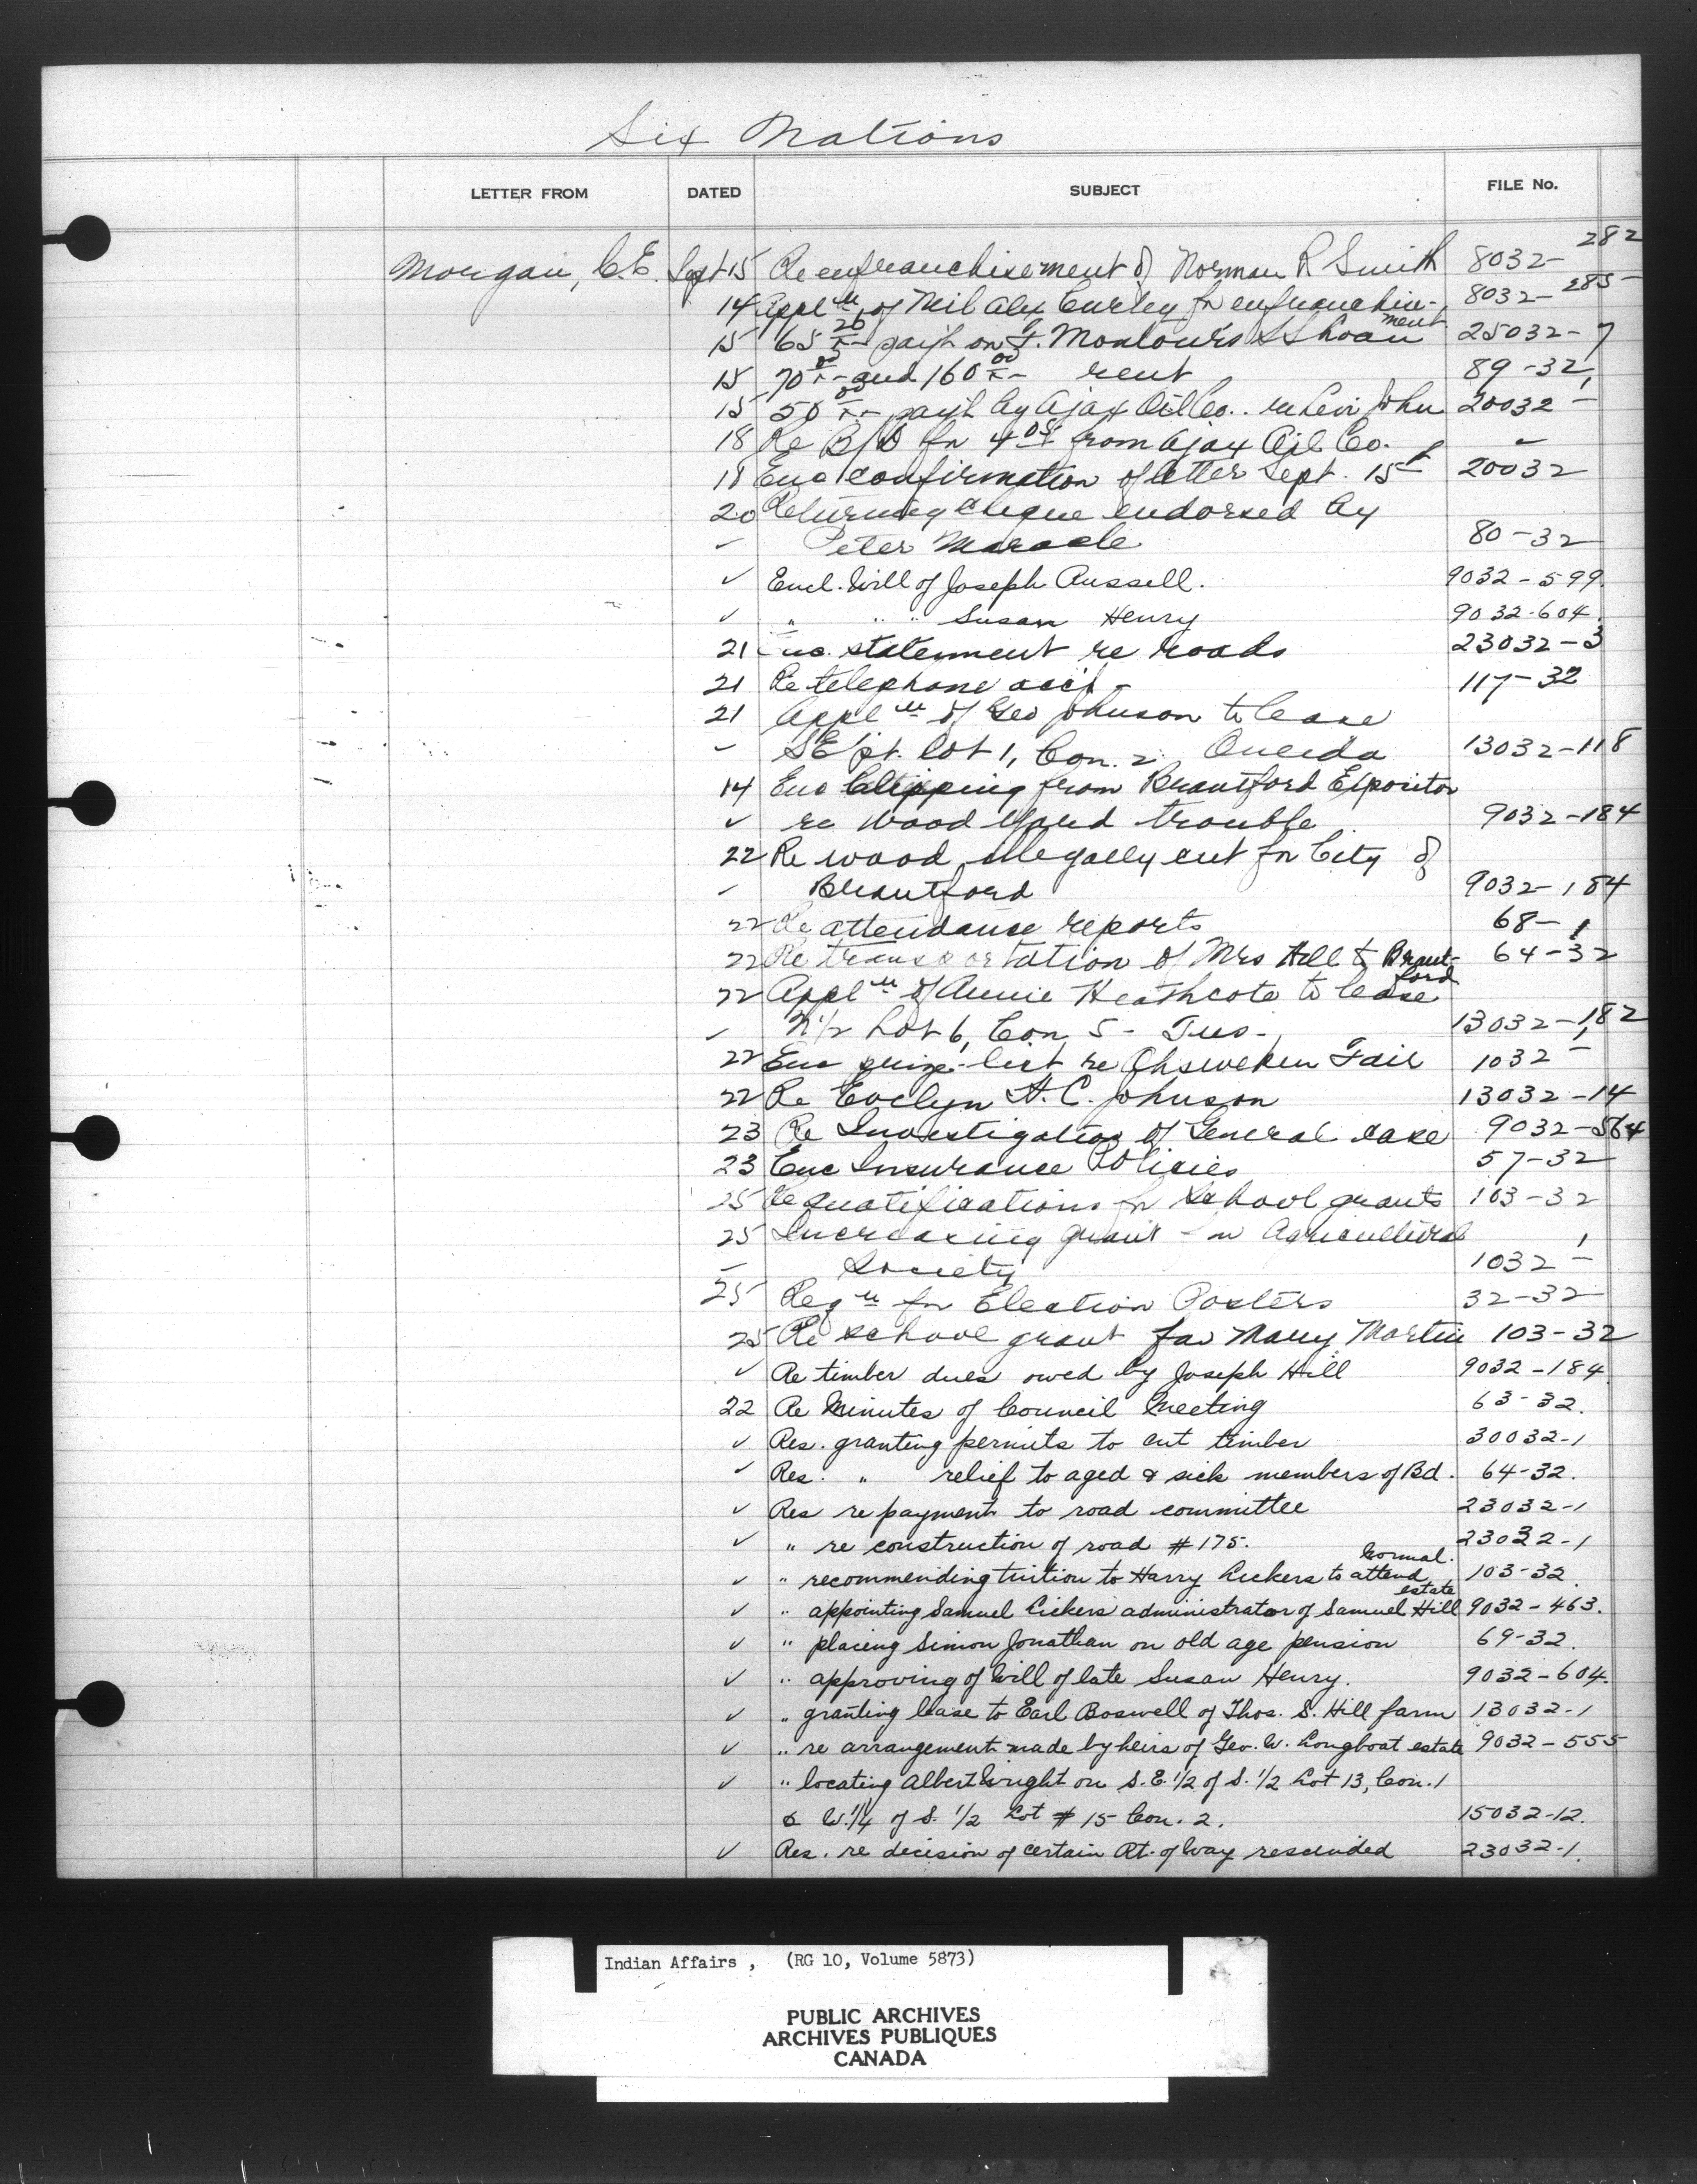 Six Nations
LETTER FROM DATED SUBJECT FILE No.
Morgan, C.E. Sept 15 Re enfranchisement of Norman R Smith 8032-282
14 Appl'n of Alex Curley for enfranchisement 8032-285
15 65 26/xx pay't on Loan 25032-7
15 70 00/xx and 160 00/xx rent 89-32
15 50 00/xx pay't by Ajax Oil Co. re Levi John 20032-
18 Re B/D for 4 05 from Ajax Oil Co. -
18 Enc confirmation of letter Sept. 15th 20032
20 Returning cheque endorsed by
✓ Peter Maracle 80-32
✓ Encl. Will of Joseph Russell. 9032-599.
✓ " " " Susan Henry 9032-604.
21 Enc. statement re roads 23032-3
21 Re telephone acc't - 117-32
21 Appl'n of Geo Johnson to lease
✓ SE pt. lot 1, Con. 2. Oneida 13032-118
14 Enc Clipping from Brantford Expositor
✓ re Wood Yard trouble 9032-184
22 Re wood illegally cut for City of
✓ Brantford 9032-184
22 Re attendance reports 68-1
22 Re transportation of Mrs Hill to Brantford 64-32
22 Appl'n of Annie Heathcote to lease
✓ N 1/2 Lot 6, Con 5 - Tus- 13032-182
22 Enc prize-list re Ohsweken Fair 1032-1
22 Re Evelyn H.C. Johnson 13032-14
23 Re Investigation of General case 9032-564
23 Enc Insurance Policies 57-32
25 Re qualifications for school grants 103-32
25 Increasing grant for Agricultural
- Society 1032-1
25 Req'n for Election Posters 32-32
25 Re school grant for Mary Martin 103-32
✓ Re timber dues owed by Joseph Hill 9032-184
22 Re Minutes of Council Meeting 63-32.
✓ Res. granting permits to cut timber 30032-1
✓ Res. " relief to aged & sick members of Bd. 64-32.
✓ Res re payment to road committee 23032-1
✓ " re construction of road #175. 23032-1
✓ " recommending tuition to Harry Lickers to attend Normal. 103-32.
✓ " appointing Samuel Lickers administrator of Samuel Hill estate 9032-463.
✓ " placing Simon Jonathan on old age pension 69-32.
✓ " approving of Will of late Susan Henry. 9032-604.
✓ " granting lease to Earl Boswell of Thos. S. Hill farm 13032-1
✓ " re arrangement made by heirs of Geo. W. Longboat estate 9032-555
✓ " locating Albert Wright on S.E. 1/2 of S. 1/2 Lot 13, Con. 1
& W. 1/4 of S. 1/2 Lot # 15 Con. 2. 15032-12.
✓ Res. re decision of certain Rt. of Way rescinded 23032-1.
Indian Affairs, (RG 10, Volume 5873)
PUBLIC ARCHIVES
ARCHIVES PUBLIQUES
CANADA